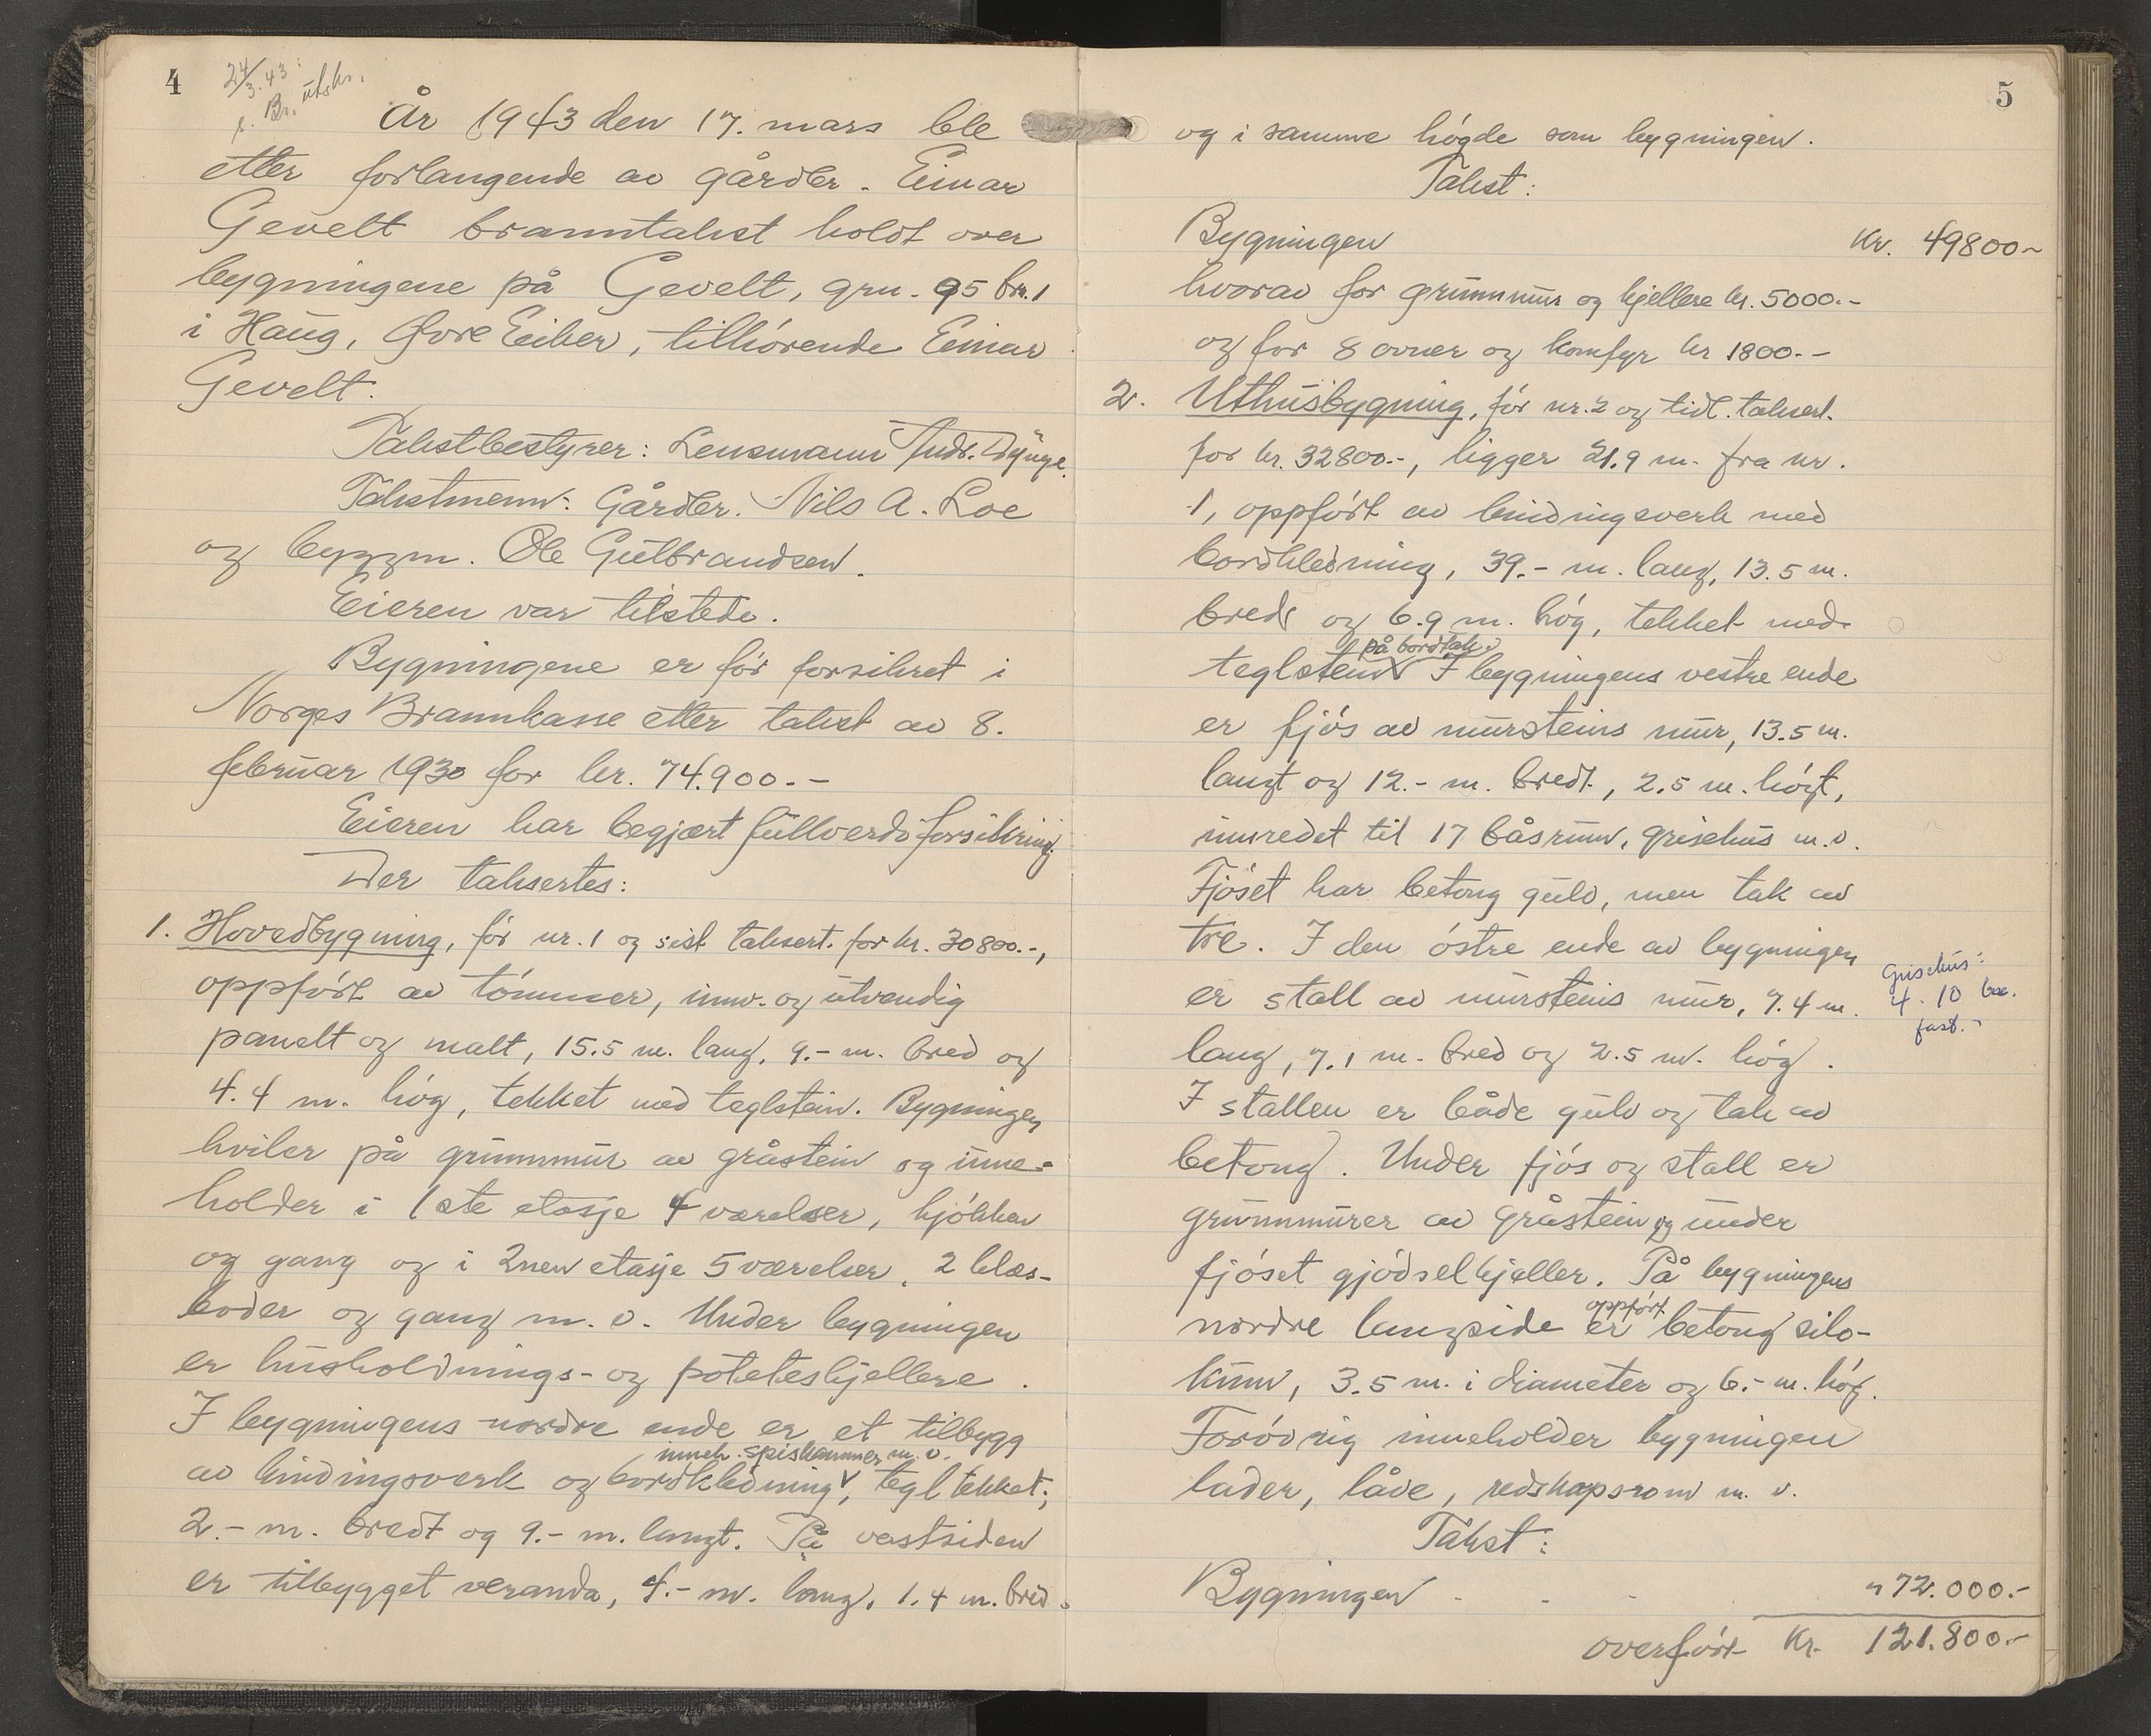 4
24/3.43:
Br. utskr.
År 1943 den 17. mars ble
etter forlangende av gårdbr. Einar
Gevelt branntakst holdt over
bygningene på Gevelt, grn. 95 brn. 1
i Haug, Øvre Eiker, tilhørende Einar
Gevelt.
Takstbestyrer: Lensmann Andr.
Takstmenn: Gårdbr. Nils A. Loe
og byggm. Ole Gulbrandsen.
Eieren var tilstede.
Bygningene er før forsikret i
Norges Brannkasse etter takst av 8.
februar 1930 for kr. 74.900.-
Eieren har begjært fullverdiforsikring.
Der taksertes:
1. Hovedbygning, før nr. 1 og sist taksert. for kr. 30800.-,
oppført av tømmer, innv. og utvendig
panelt og malt, 15.5 m. lang, 9.- m. bred og
4.4 m. høg, tekket med teglstein. Bygningen
hviler på grunnmur av gråstein og inne-
holder i 1ste etasje 4 værelser, kjøkken
og gang og i 2nen etasje 5 værelser, 2 klæs-
boder og gang m. v. Under bygningen
er husholdnings- og poteteskjellere.
I bygningens nordre ende er et tilbygg
inneh. spiskammer m. v.
av bindingsverk og bordkledning, tegltekket,
2.- m. bredt og 9.- m. langt. På vestsiden
er tilbygget veranda, 4.- m. lang, 1.4 m. bred
5
og i samme høgde som bygningen.
Takst:
Bygningen Kr. 49800-
hvorav for grunnmur og kjellere kr. 5000.-
og for 8 ovner og komfyr kr 1800.-
2. Uthusbygning, før nr. 2 og tidl. taksert.
for kr. 32800.-, ligger 21.9 m. fra nr.
1, oppført av bindingsverk med
bordkledning, 39.- m. lang, 13.5 m.
bred og 6.9 m. høg, tekket med
på bordtak.
teglstein I bygningens vestre ende
er fjøs av mursteins mur, 13.5 m.
langt og 12.- m. bredt, 2.5 m. høgt,
innredet til 17 båsrum, grisehus m.v.
Fjøset har betong gulv, men tak av
tre. I den østre ende av bygningen
er stall av mursteins mur, 7.4 m.
Grisehus:
4. 10
lang, 7.1 m. bred og 2.5 m. høg.
I stallen er både gulv og tak av
betong. Under fjøs og stall er
grunnmurer av gråstein og under
fjøset gjødselkjeller. På bygningens
oppført
nordre langside er betong silo-
kum, 3.5 m. i diameter og 6.- m. høg.
Forøvrig inneholder bygningen
lader, låve, redskapsrom m. v.
Takst:
Bygningen - - - " 72.000.-
overført Kr. 121.800.-